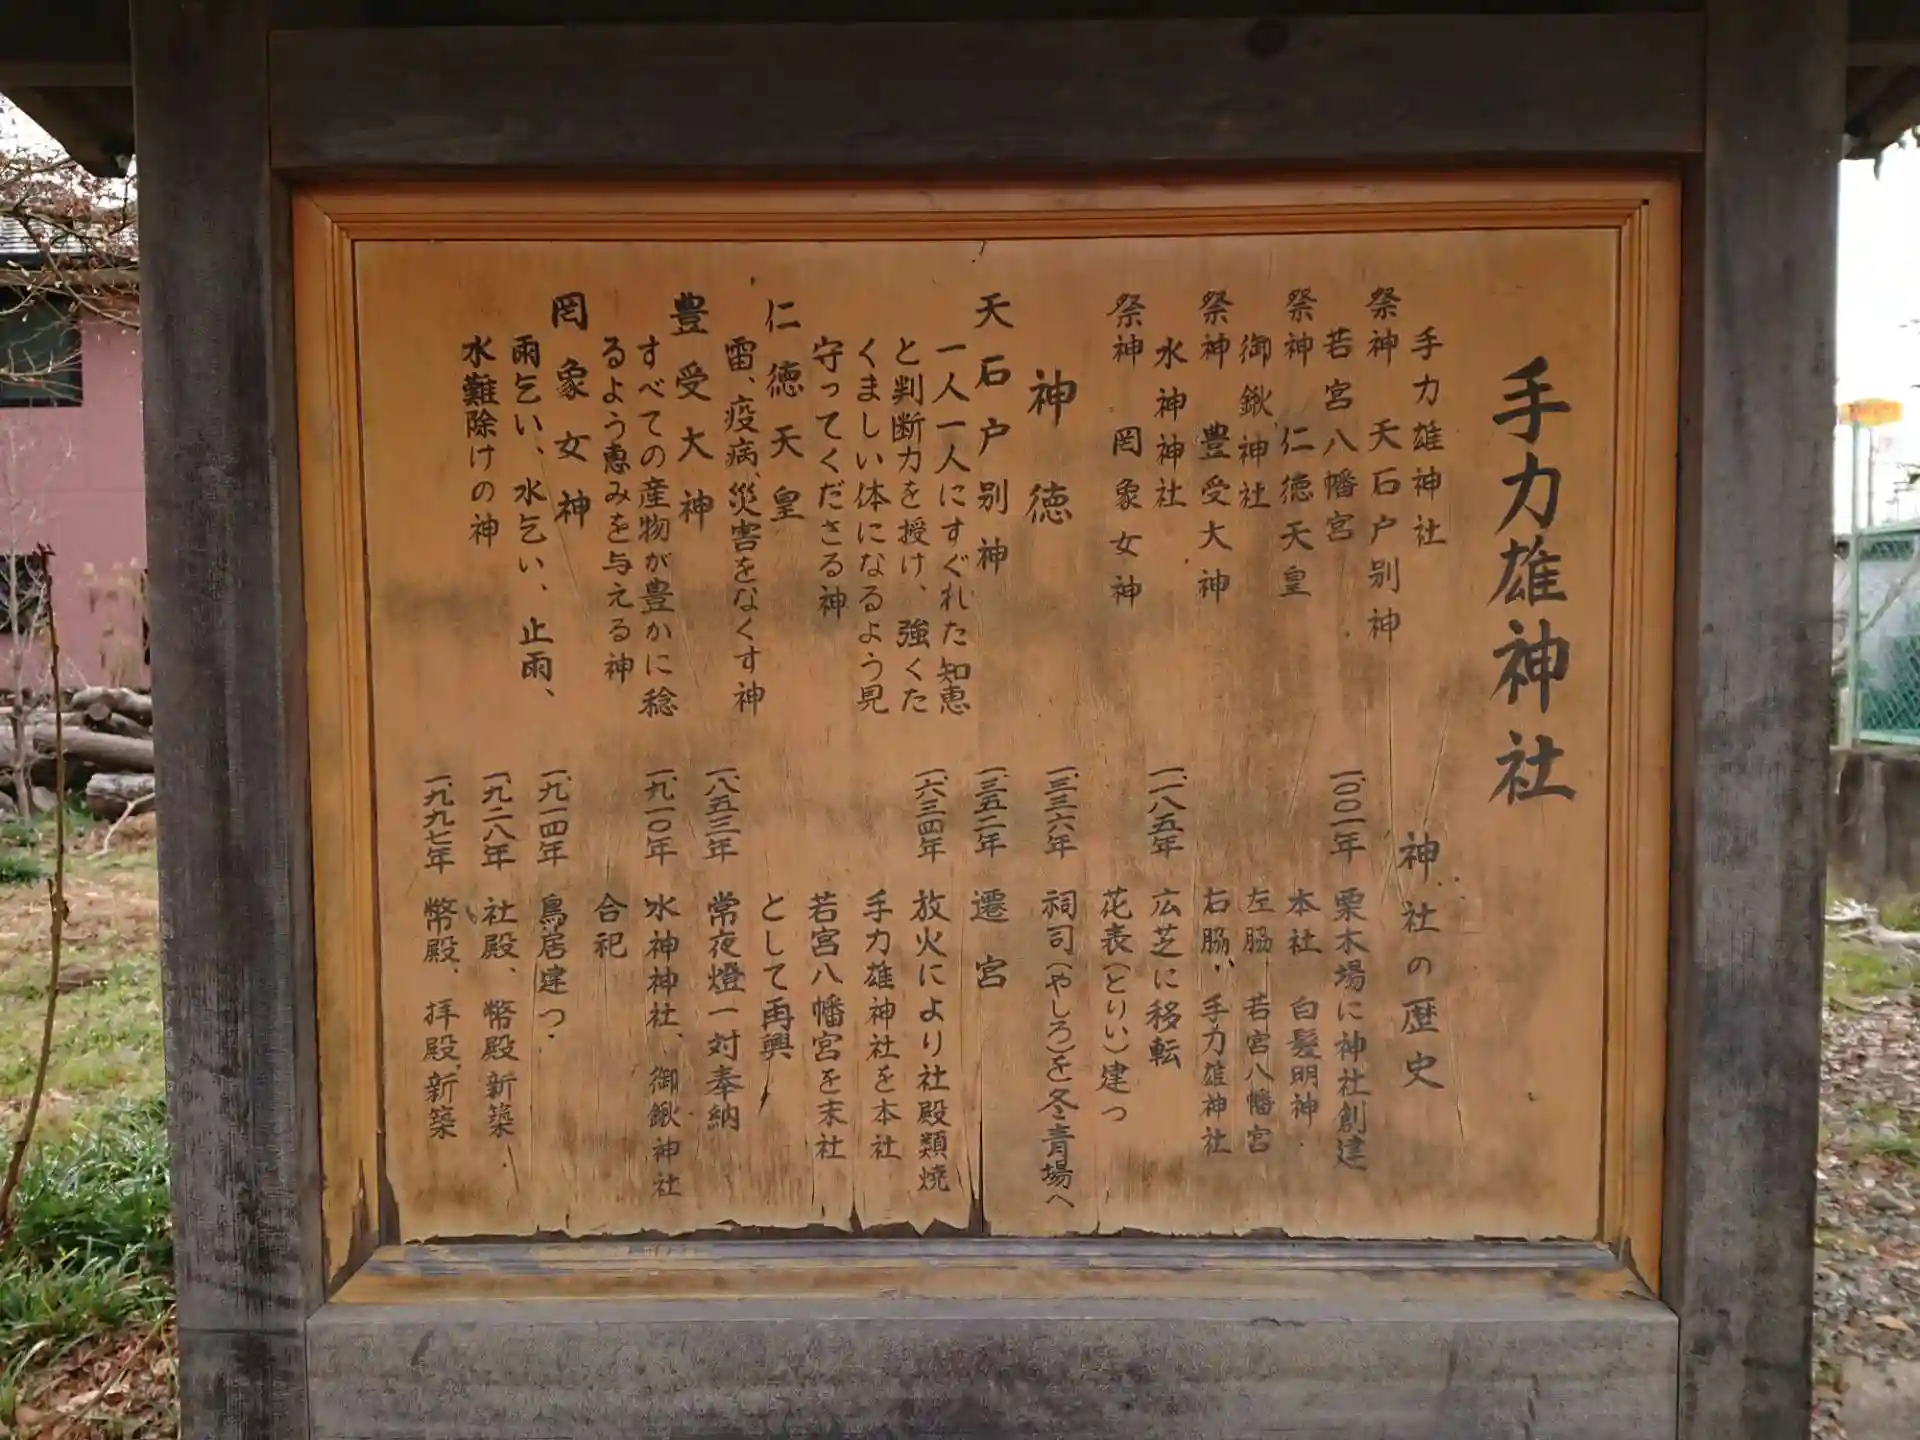 手力雄神社
手力雄神社
祭神 天石戸別神
若宮八幡宮
祭神 仁徳天皇
御鍬神社
祭神 豊受大神
水神神社
祭神 罔象女神
神徳
天石戸別神
一人一人にすぐれた知恵
と判断力を授け、強くた
くましい体になるよう見
守ってくださる神
仁徳天皇
雷、疫病、災害をなくす神
豊受大神
すべての産物が豊かに稔
るよう恵みを与える神
罔象女神
雨乞い、水乞い、止雨、
水難除けの神
神社の歴史
一、〇〇一年 栗木場に神社創建
本社 白髪明神
左脇 若宮八幡宮
右脇 手力雄神社
一、一八五年 広芝に移転
花表(とりい)建つ
一、三三六年 祠司(やしろ)を冬青場へ
一、三五二年 遷宮
一、六三四年 放火により社殿類焼
手力雄神社を本社
若宮八幡宮を末社
として再興
一、八五三年 常夜燈一対奉納
一、九一〇年 水神神社、御鍬神社
合祀
一、九一四年 鳥居建つ
一、九二八年 社殿、幣殿新築
一、九九七年 幣殿、拝殿、新築